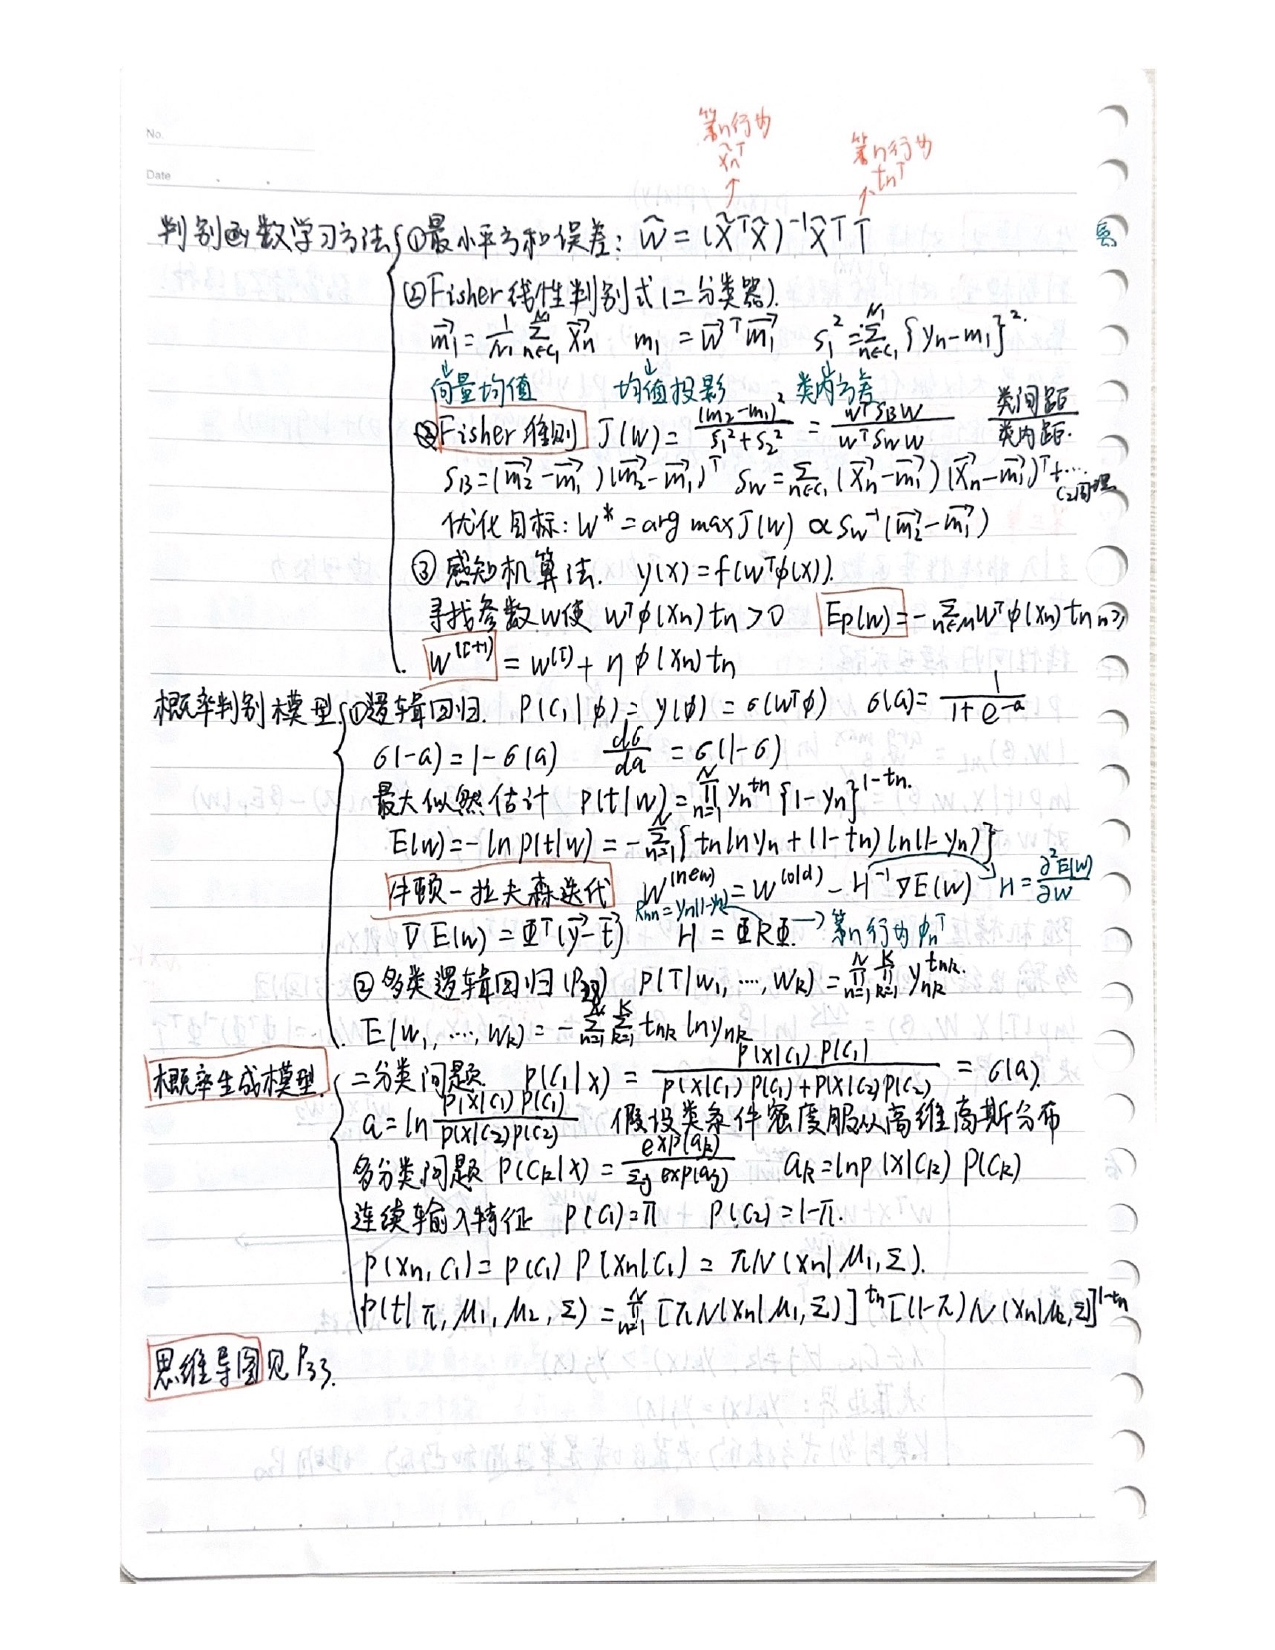 No.
Date
第n行为 x̃nᵀ
第n行为 tnᵀ
判别函数学习方法 ①最小平方和误差: W̃ = (X̃ᵀX̃)⁻¹X̃ᵀT
②Fisher线性判别式(二分类器).
m₁→ = 1/N₁ Σ_{n∈C₁}^{N₁} xn→  m₁ = w→ᵀm₁→  s₁² = Σ_{n∈C₁}^{N₁} {yn-m₁}².
向量均值 均值投影 类内方差
Fisher准则 J(w) = (m₂-m₁)²/(s₁²+s₂²) = wᵀS_B w/wᵀS_W w 类间距/类内距.
S_B = (m₂→-m₁→)(m₂→-m₁→)ᵀ S_W = Σ_{n∈C₁} (xn→-m₁→)(xn→-m₁→)ᵀ+...
C₂同理
优化目标: w* = arg max J(w) ∝ S_W⁻¹(m₂→-m₁→)
③感知机算法. y(x) = f(wᵀφ(x)).
寻找参数w使 wᵀφ(xn)tn > 0 Ep(w) = -Σ_{n∈M} wᵀφ(xn)tn
w^(τ+1) = w^(τ) + η φ(xn)tn
概率判别模型 ①逻辑回归. P(C₁|φ) = y(φ) = σ(wᵀφ) σ(a) = 1/(1+e^-a)
σ(-a) = 1-σ(a) dσ/da = σ(1-σ)
最大似然估计 P(t|w) = Π_{n=1}^N yn^tn {1-yn}^{1-tn}.
E(w) = -ln p(t|w) = -Σ_{n=1}^N {tn ln yn + (1-tn) ln(1-yn)}
牛顿-拉夫森迭代 W^(new) = W^(old) - H⁻¹∇E(w) H = ∂²E(w)/∂w
Rnn = yn(1-yn)
∇E(w) = Φᵀ(y→-t→) H = ΦRΦ. → 第n行为φnᵀ
②多类逻辑回归 P(T|w₁, ..., wk) = Π_{n=1}^N Π_{k=1}^K y_nk^tnk.
E(w₁, ..., wk) = -Σ_{n=1}^N Σ_{k=1}^K tnk ln ynk
概率生成模型. 二分类问题. P(C₁|x) = P(x|C₁)·P(C₁)/(P(x|C₁)P(C₁)+P(x|C₂)P(C₂)) = σ(a).
a = ln P(x|C₁)P(C₁)/P(x|C₂)P(C₂) 假设类条件密度服从高维高斯分布
多分类问题 P(Ck|x) = exp(ak)/Σj exp(aj) ak = ln p(x|Ck) P(Ck)
连续输入特征 P(C₁)=π P(C₂)=1-π.
P(xn, C₁) = P(C₁) P(xn|C₁) = πN(xn|μ₁, Σ).
P(t|π, μ₁, μ₂, Σ) = Π_{n=1}^N [πN(xn|μ₁, Σ)]^tn [(1-π)N(xn|μ₂, Σ)]^{1-tn}
思维导图见P33.